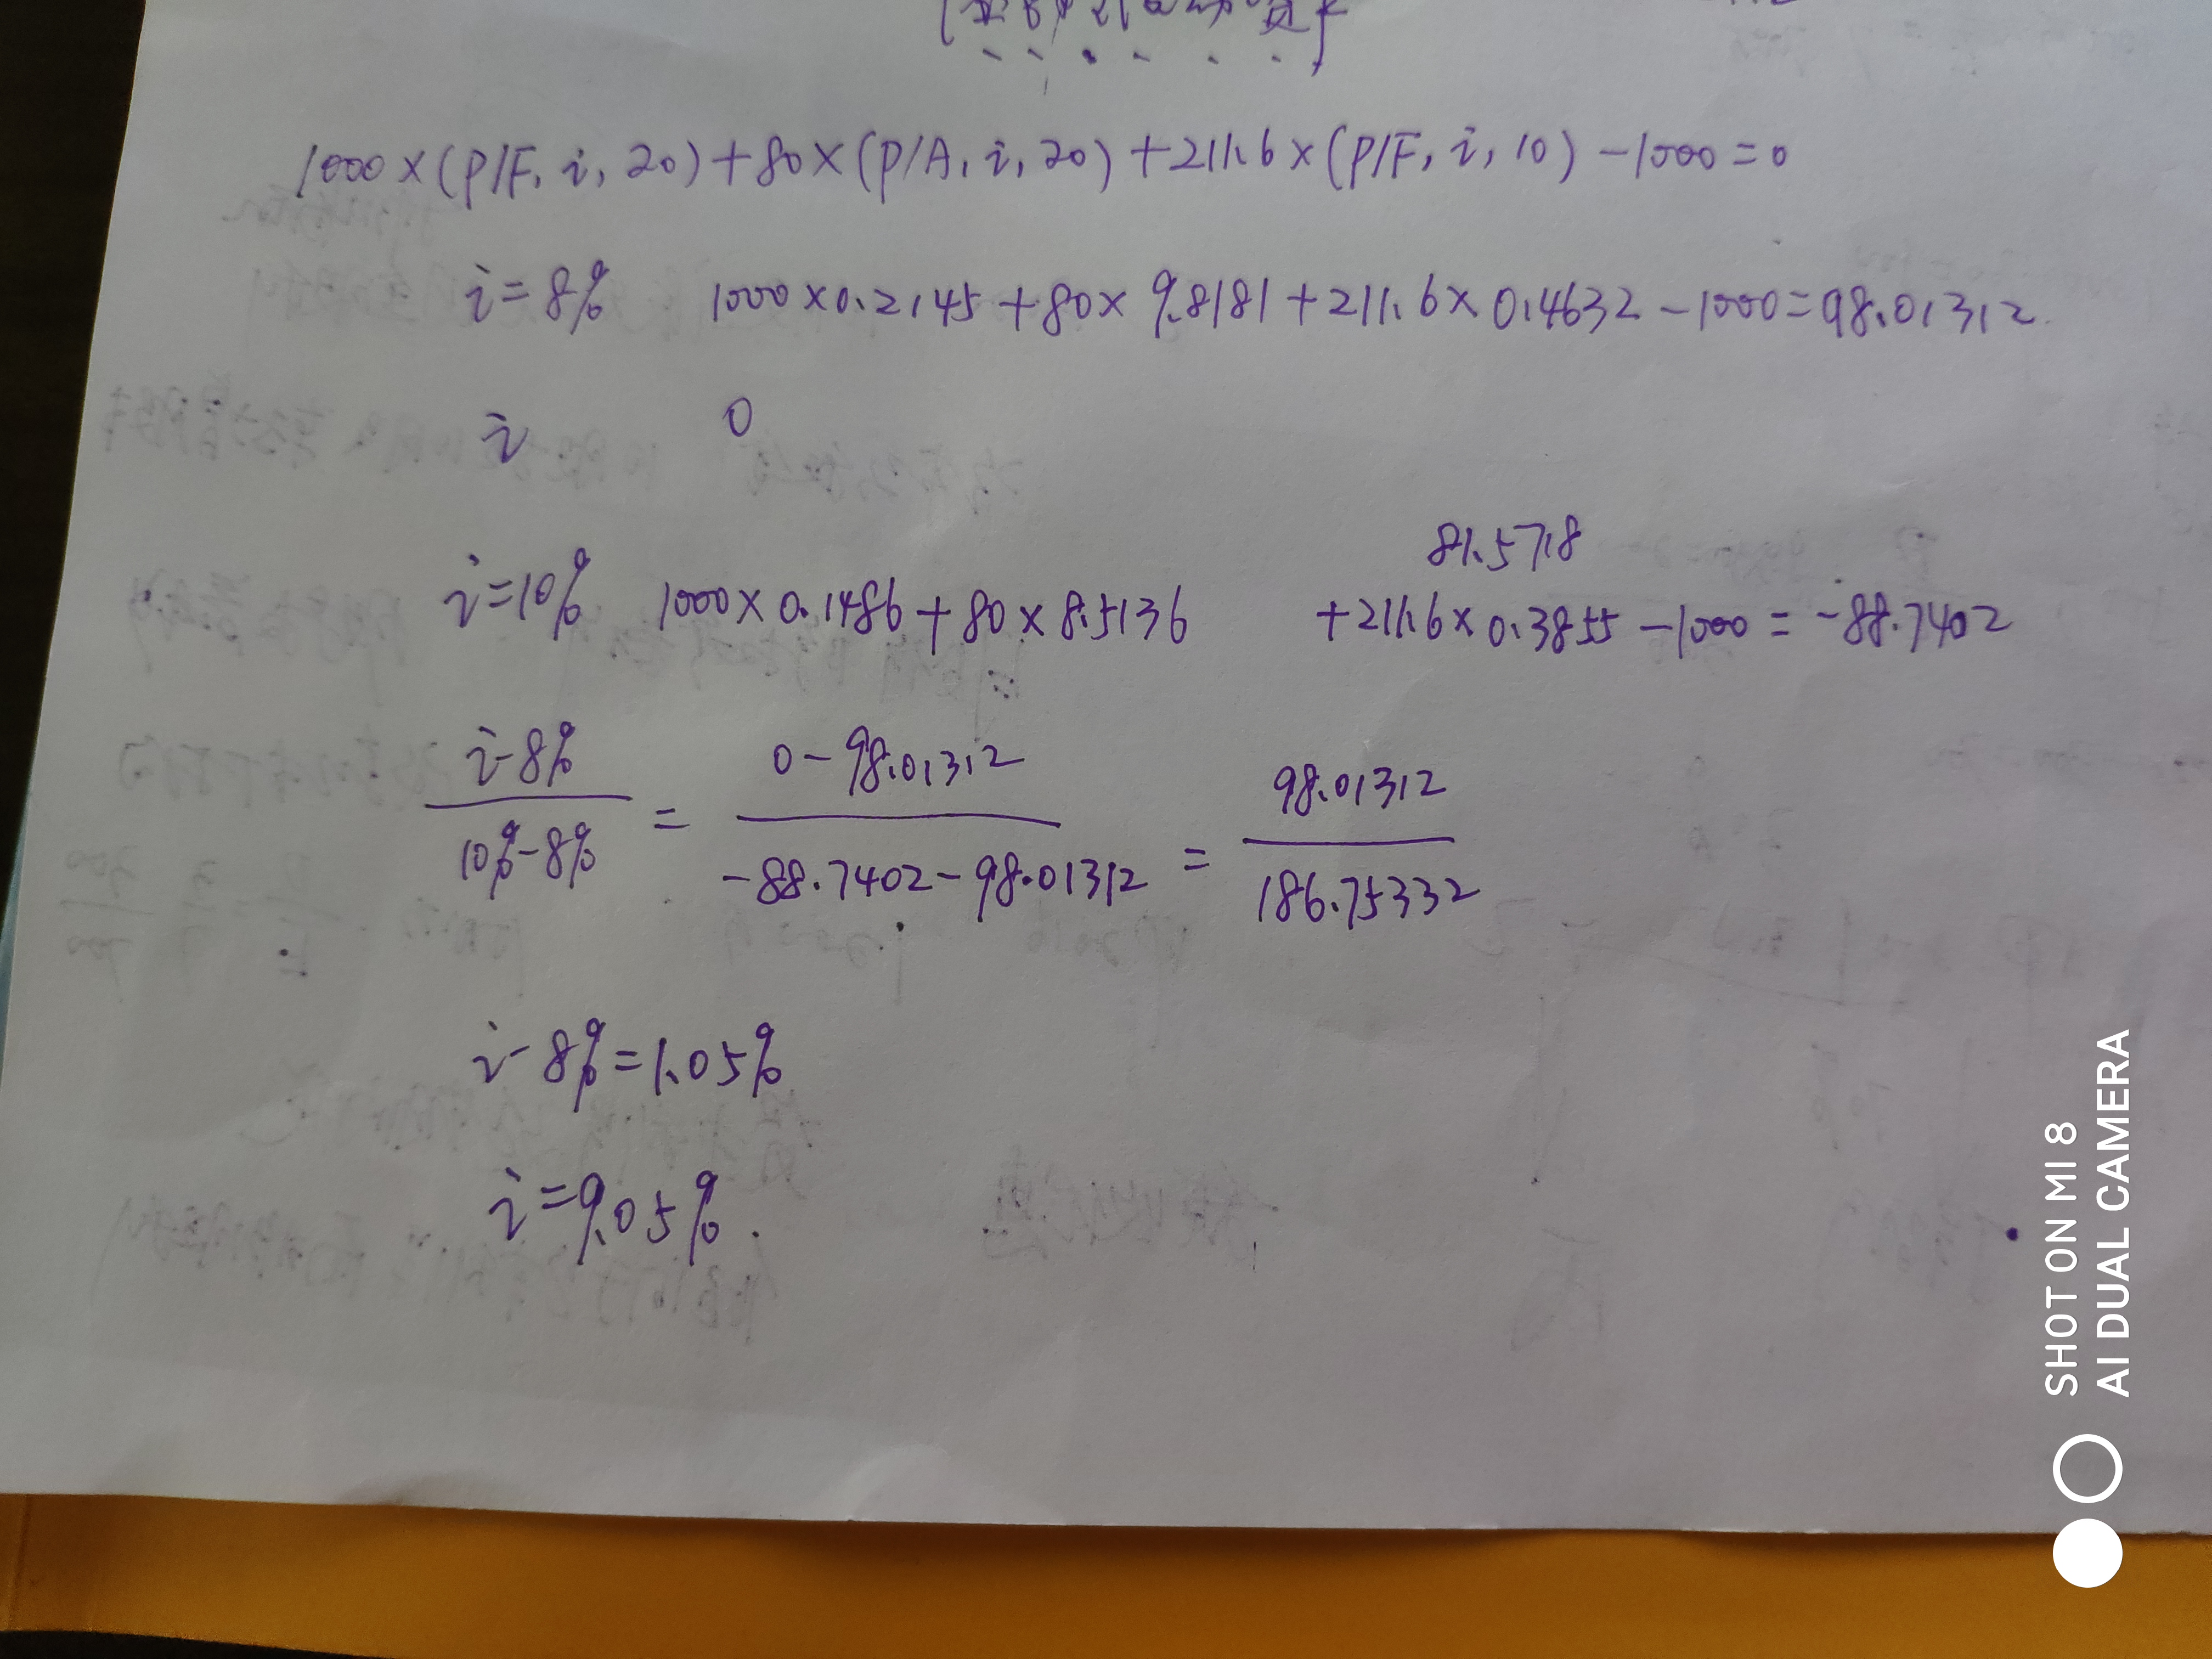 1000×(P/F, i, 20)+80×(P/A, i, 20)+211.6×(P/F, i, 10)-1000=0
i=8% 1000×0.2145+80×9.8181+211.6×0.4632-1000=98.01312
i 0
81.5718
i=10% 1000×0.1486+80×8.5136 +211.6×0.3855-1000=-88.7402
i-8% 0-98.01312 98.01312
10%-8% = -88.7402-98.01312 = 186.75332
i-8%=1.05%
i=9.05%
SHOT ON MI 8
AI DUAL CAMERA